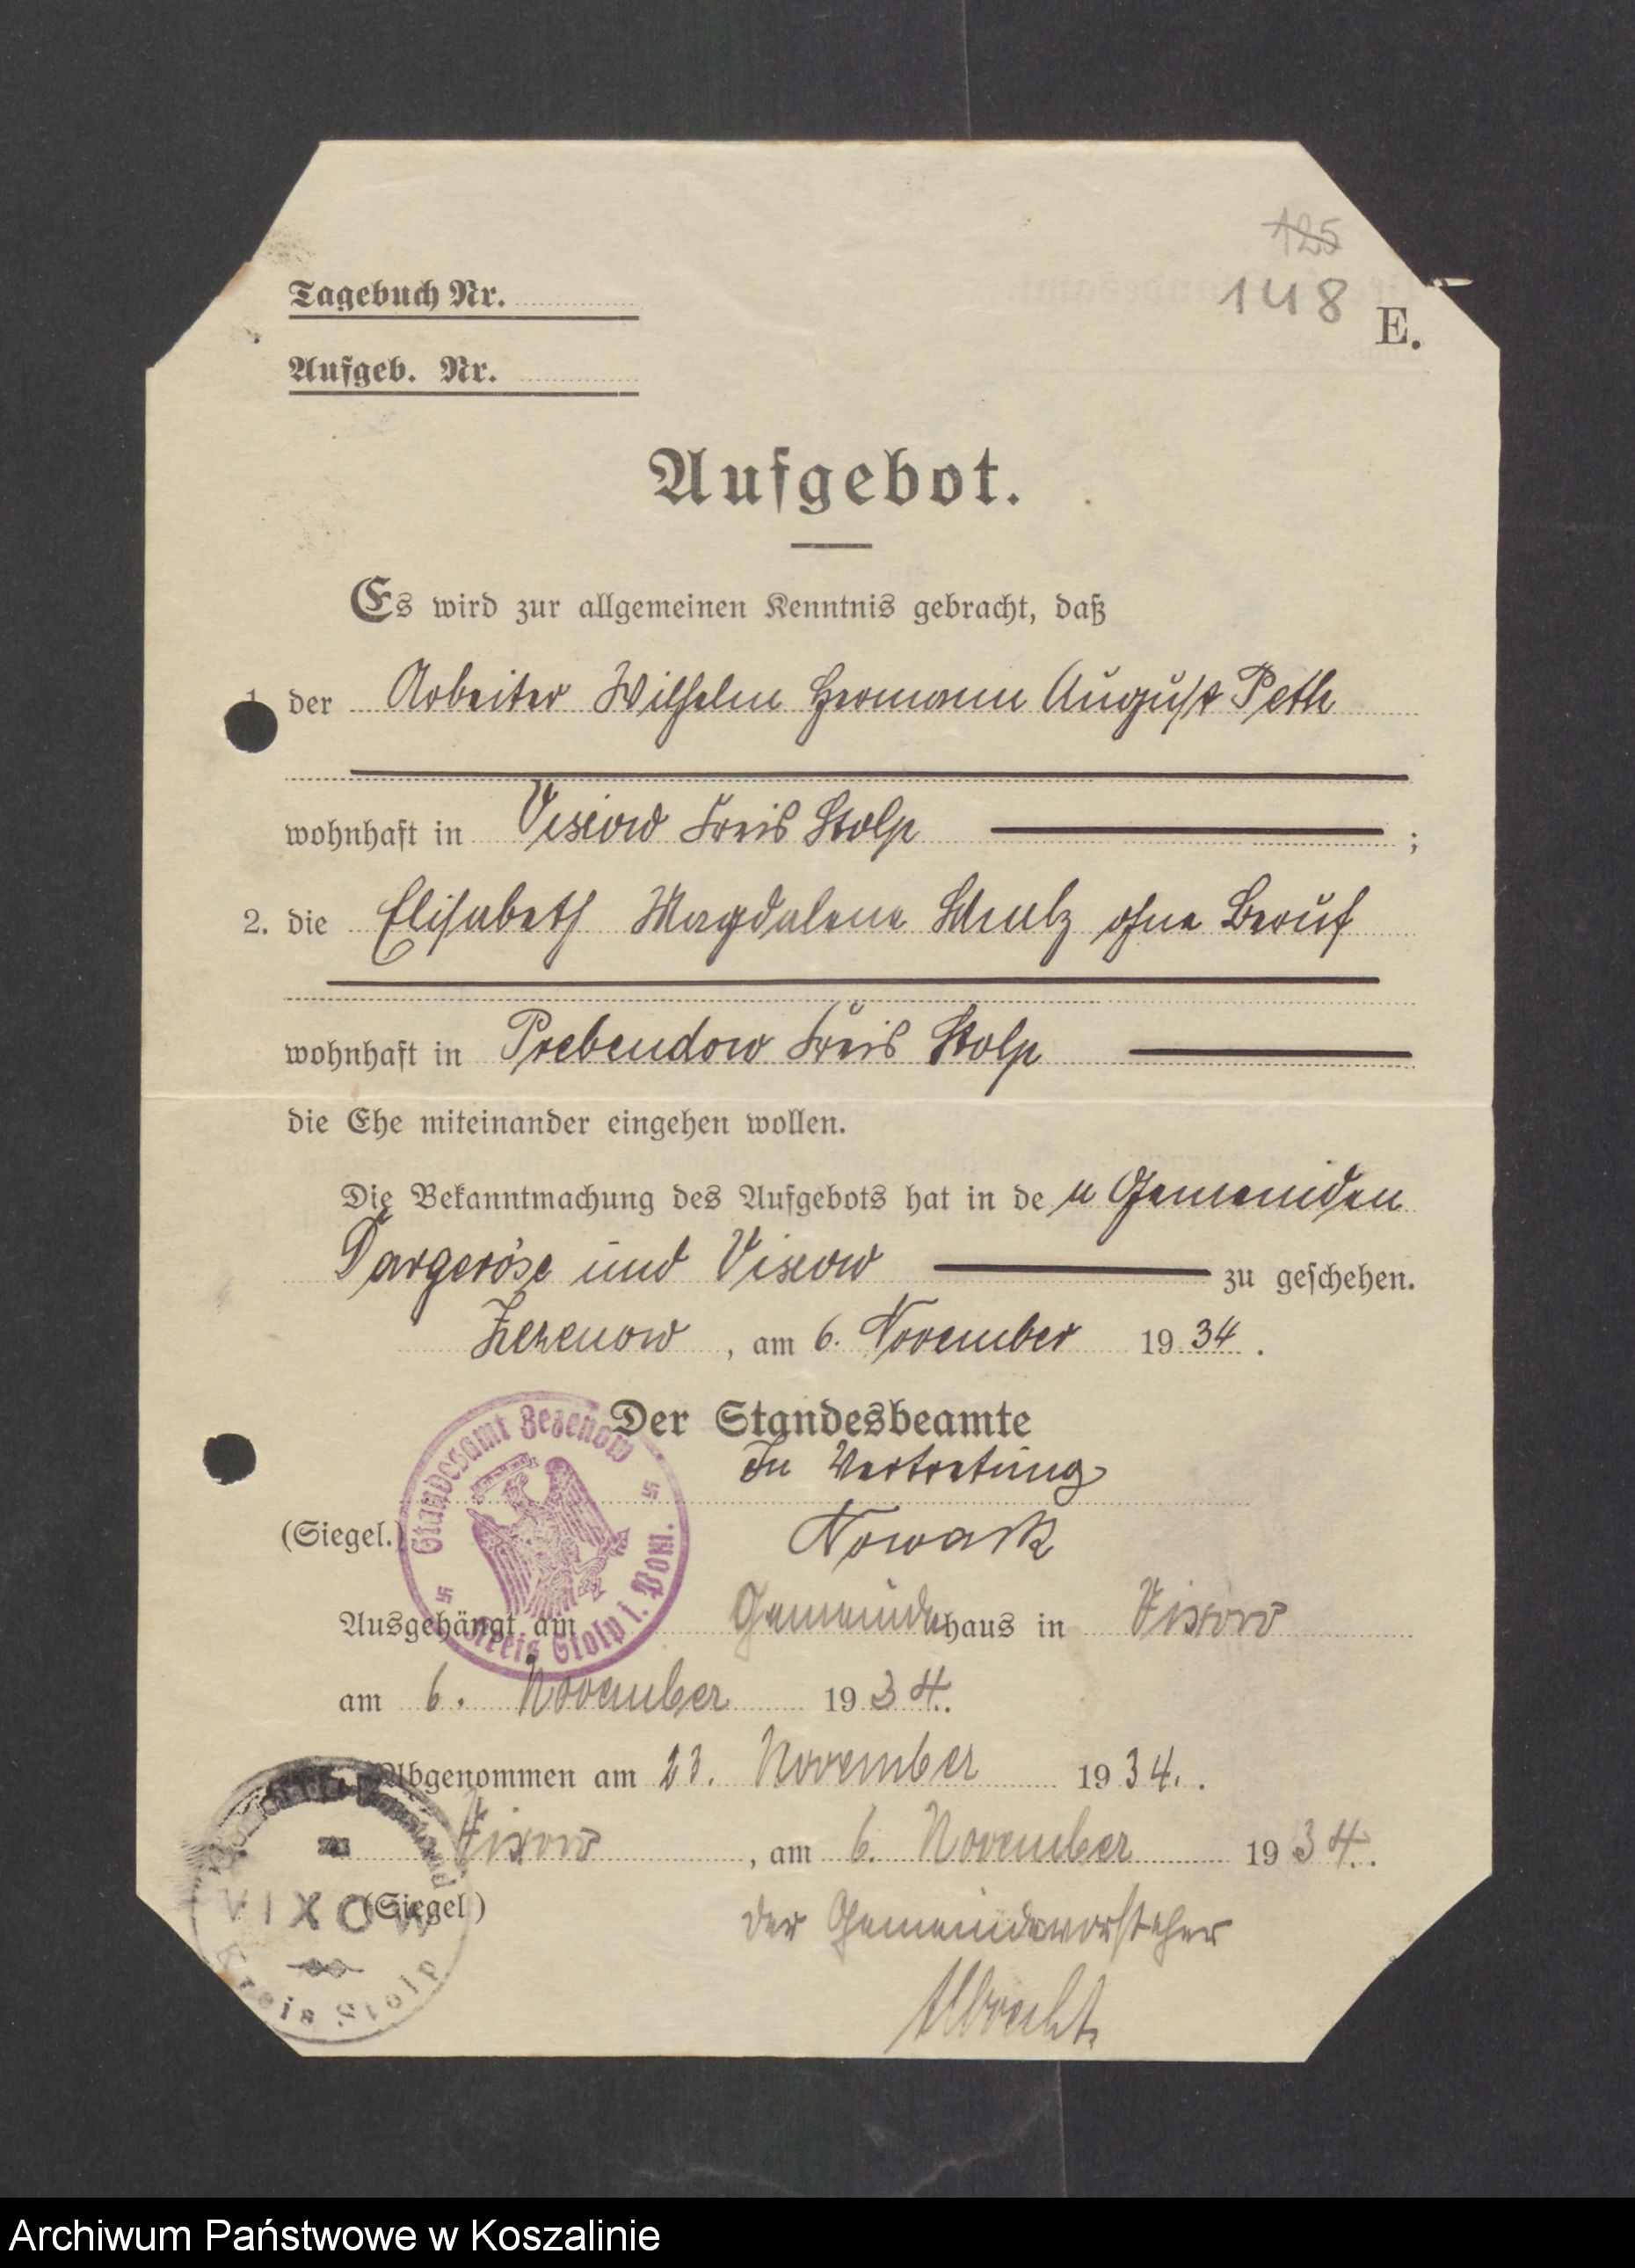 125
148
Tagebuch Nr.
E.
Aufgeb. Nr.
Aufgebot.
Es wird zur allgemeinen Kenntnis gebracht, daß
1. der Arbeiter Wilhelm Hermann August Peth
wohnhaft in Vixow Kreis Stolp ;
2. die Elisabeth Magdalene Schulz ohne Beruf
wohnhaft in Prebendow Kreis Stolp
die Ehe miteinander eingehen wollen.
Die Bekanntmachung des Aufgebots hat in de n Gemeinden
Dargeröse und Vixow zu geschehen.
Zezenow, am 6. November 1934.
Der Standesbeamte
In Vertretung
(Siegel.)
Nowack
Standesamt Zezenow
Kreis Stolp i. Pom.
Ausgehängt am Gemeindehaus in Vixow
am 6. November 1934.
Abgenommen am 23. November 1934.
Vixow, am 6. November 1934.
(Siegel)
VIXOW
Kreis Stolp
der Gemeindevorsteher
Albrecht
Archiwum Państwowe w Koszalinie